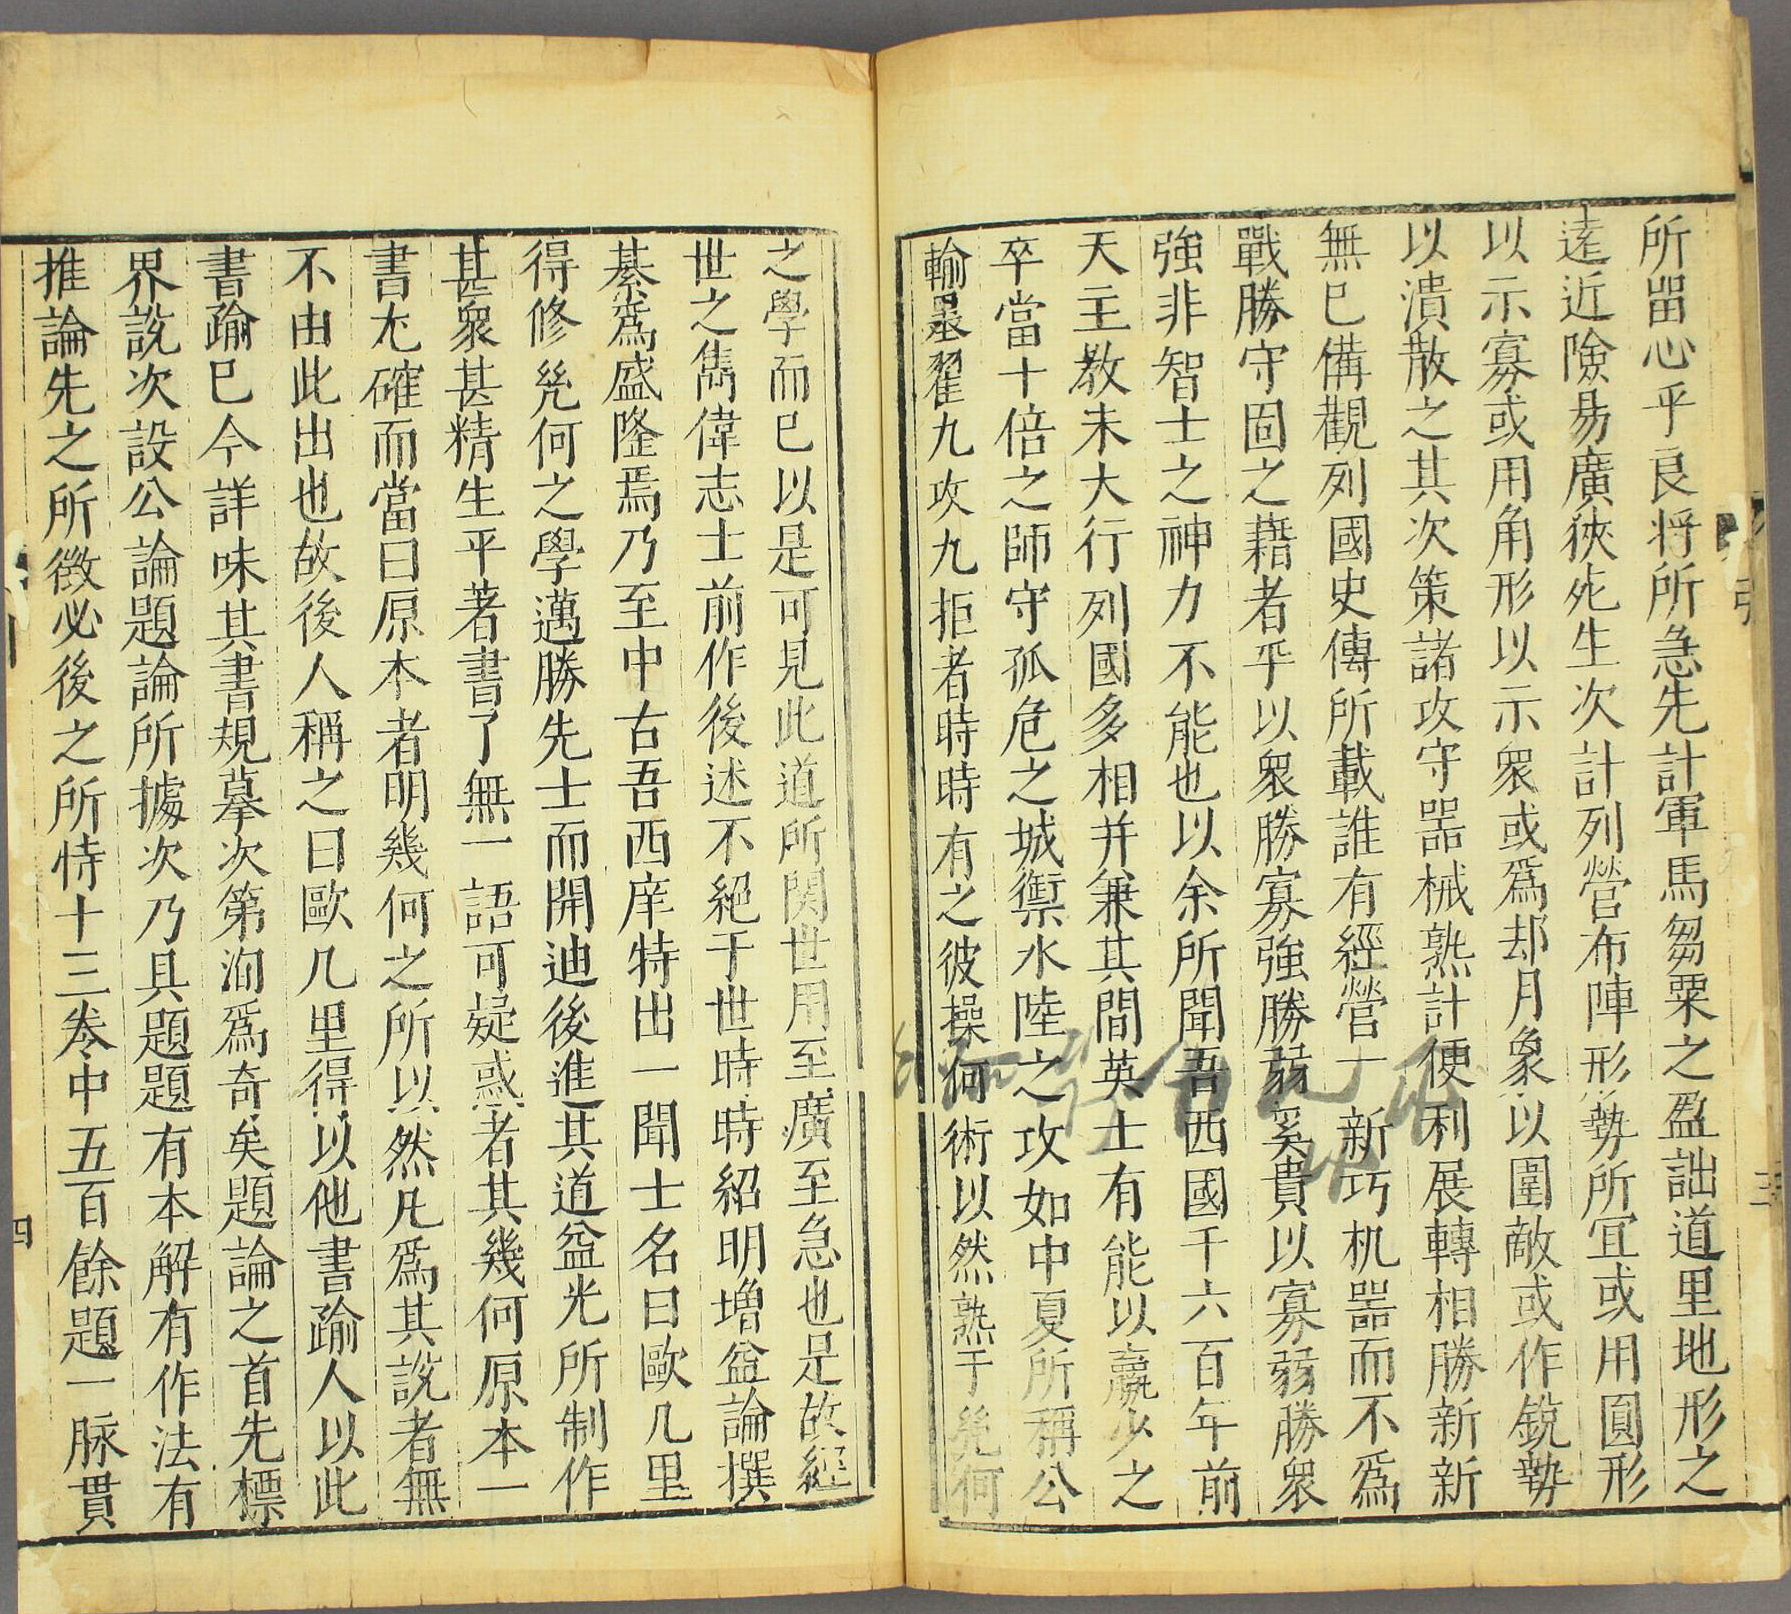 所畱心乎良将所急先計軍馬芻粟之盈詘道里地形之
逺近險易廣狹死生次計列營布陣形勢所宜或用圓形
以示寡或用角形以示衆或爲却月象以圍敵或作銳勢
以潰散之其次策諸攻守噐械熟計便利展轉相勝新新
無已備觀列國史傳所載誰有經營一新巧机噐而不爲
戰勝守固之藉者乎以衆勝寡強勝弱奚貴以寡弱勝衆
強非智士之神力不能也以余所聞吾西國千六百年前
天主教未大行列國多相并兼其間英士有能以羸少之
卒當十倍之師守孤危之城禦水陸之攻如中夏所稱公
輸墨翟九攻九拒者時時有之彼操何術以然熟于㡬何
之學而已以是可見此道所関世用至廣至急也是故經
世之雋偉志士前作後述不絕于世時時紹明增益論撰
綦爲盛隆焉乃至中古吾西庠特出一聞士名曰歐几里
得修㡬何之學邁勝先士而開迪後進其道益光所制作
甚衆甚精生平著書了無一語可疑惑者其幾何原本一
書尤確而當曰原本者明幾何之所以然凡爲其說者無
不由此出也故後人稱之曰歐几里得以他書踰人以此
書踰己今詳味其書規摹次第洵爲奇矣題論之首先標
界說次設公論題論所據次乃具題題有本解有作法有
推論先之所徵必後之所恃十三卷中五百餘題一脉貫
引
三
四